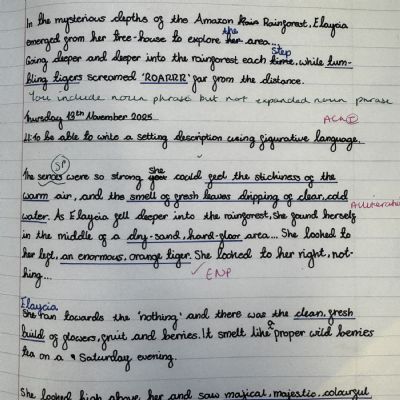 In the mysterious depths of the Amazon Rain Rainforest, Elaycia
emerged from her tree-house to explore her the area.
Going deeper and deeper into the rainforest each time step, while tum-
bling tigers screamed 'ROARRR' far from the distance.
You include noun phrase but not expanded noun phrase
Thursday 13th November 2025
ACA I
LI: to be able to write a setting description using figurative language.
Sp
The sences were so strong She could feel the stickiness of the
warm air, and the smell of fresh leaves dripping of clear, cold
Alliteration
water. As Elaycia fell deeper into the rainforest, She found herself
in the middle of a dry-sand, hard-floor area... She looked to
her left, an enormous, orange tiger. She looked to her right, not-
hing...
ENP
Elaycia
She ran towards the 'nothing' and there was the clean, fresh
build of flowers, fruit and berries. It smelt like proper wild berries
tea on a Saturday evening.
She looked high above her and saw magical, majestic, colourful